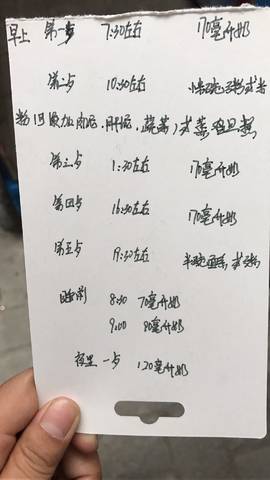 早上 第一步 7:30左右 170毫升奶
第二步 10:30左右 小半碗粥或者
粉 1日顿加肉泥、肝泥、蔬菜,或蒸鸡旦羹
第三步 1:30左右 170毫升奶
第四步 16:30左右 170毫升奶
第五步 19:30左右 半碗面条或粥
睡前 8:30 70毫升奶
9:00 80毫升奶
夜里 一步 120毫升奶